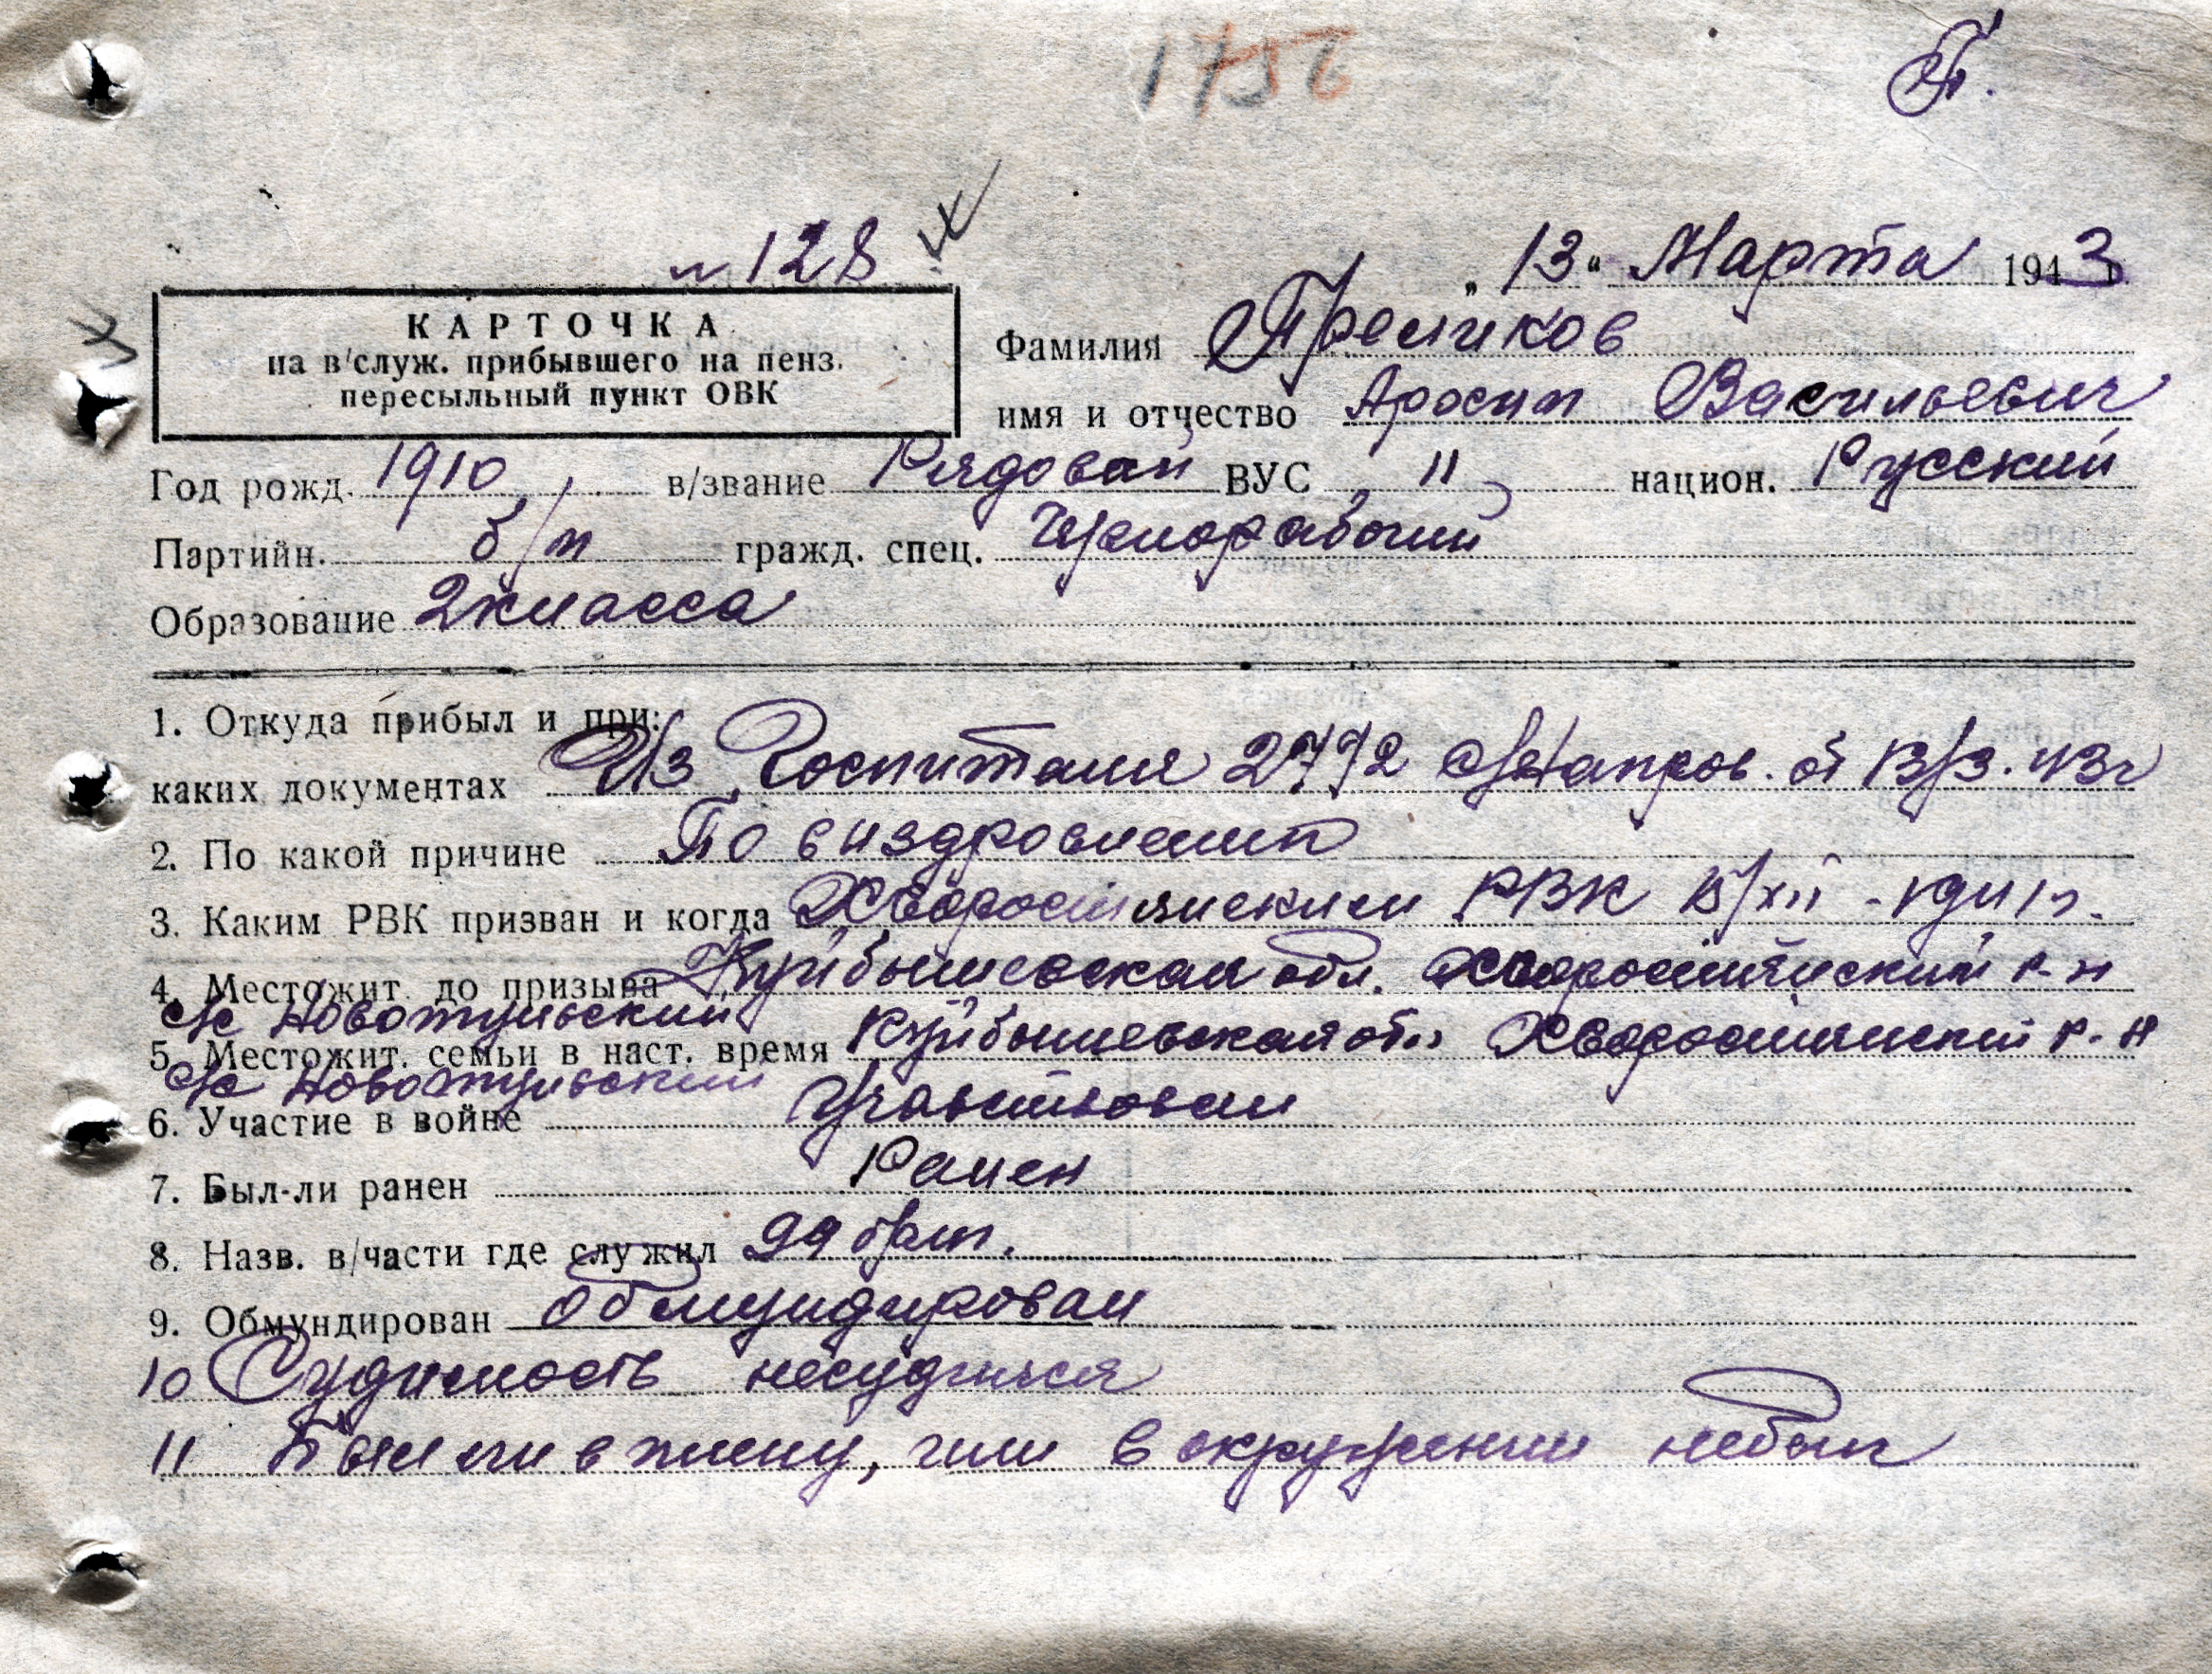 1756
№ 128
„ 13 “ Марта 1943 г.
КАРТОЧКА
на в/служ. прибывшего на пенз.
пересыльный пункт ОВК
Фамилия
имя и отчество Аросип Васильевич
Год рожд. 1910 в/звание Рядовой ВУС 11 национ. Русский
Партийн. б/п гражд. спец. Чернорабочий
Образование 2 класса
1. Откуда прибыл и при
каких документах Из Госпиталя 2772 от 13/3. 43 г
2. По какой причине По виздровлении
3. Каким РВК призван и когда Хворостянским РВК 15/XII - 1941 г.
4. Местожит. до призыва Куйбышевская обл. Хворостянский р-н
с/с Новотульский
5. Местожит. семьи в наст. время Куйбышевская обл Хворостянский р-н
с/с Новотульский
6. Участие в войне Участвовал
7. Был-ли ранен Ранен
8. Назв. в/части где служил 99
9. Обмундирован обмундирован
10 Судимость несудился
11 Был ли в плену, или в окружении небыл